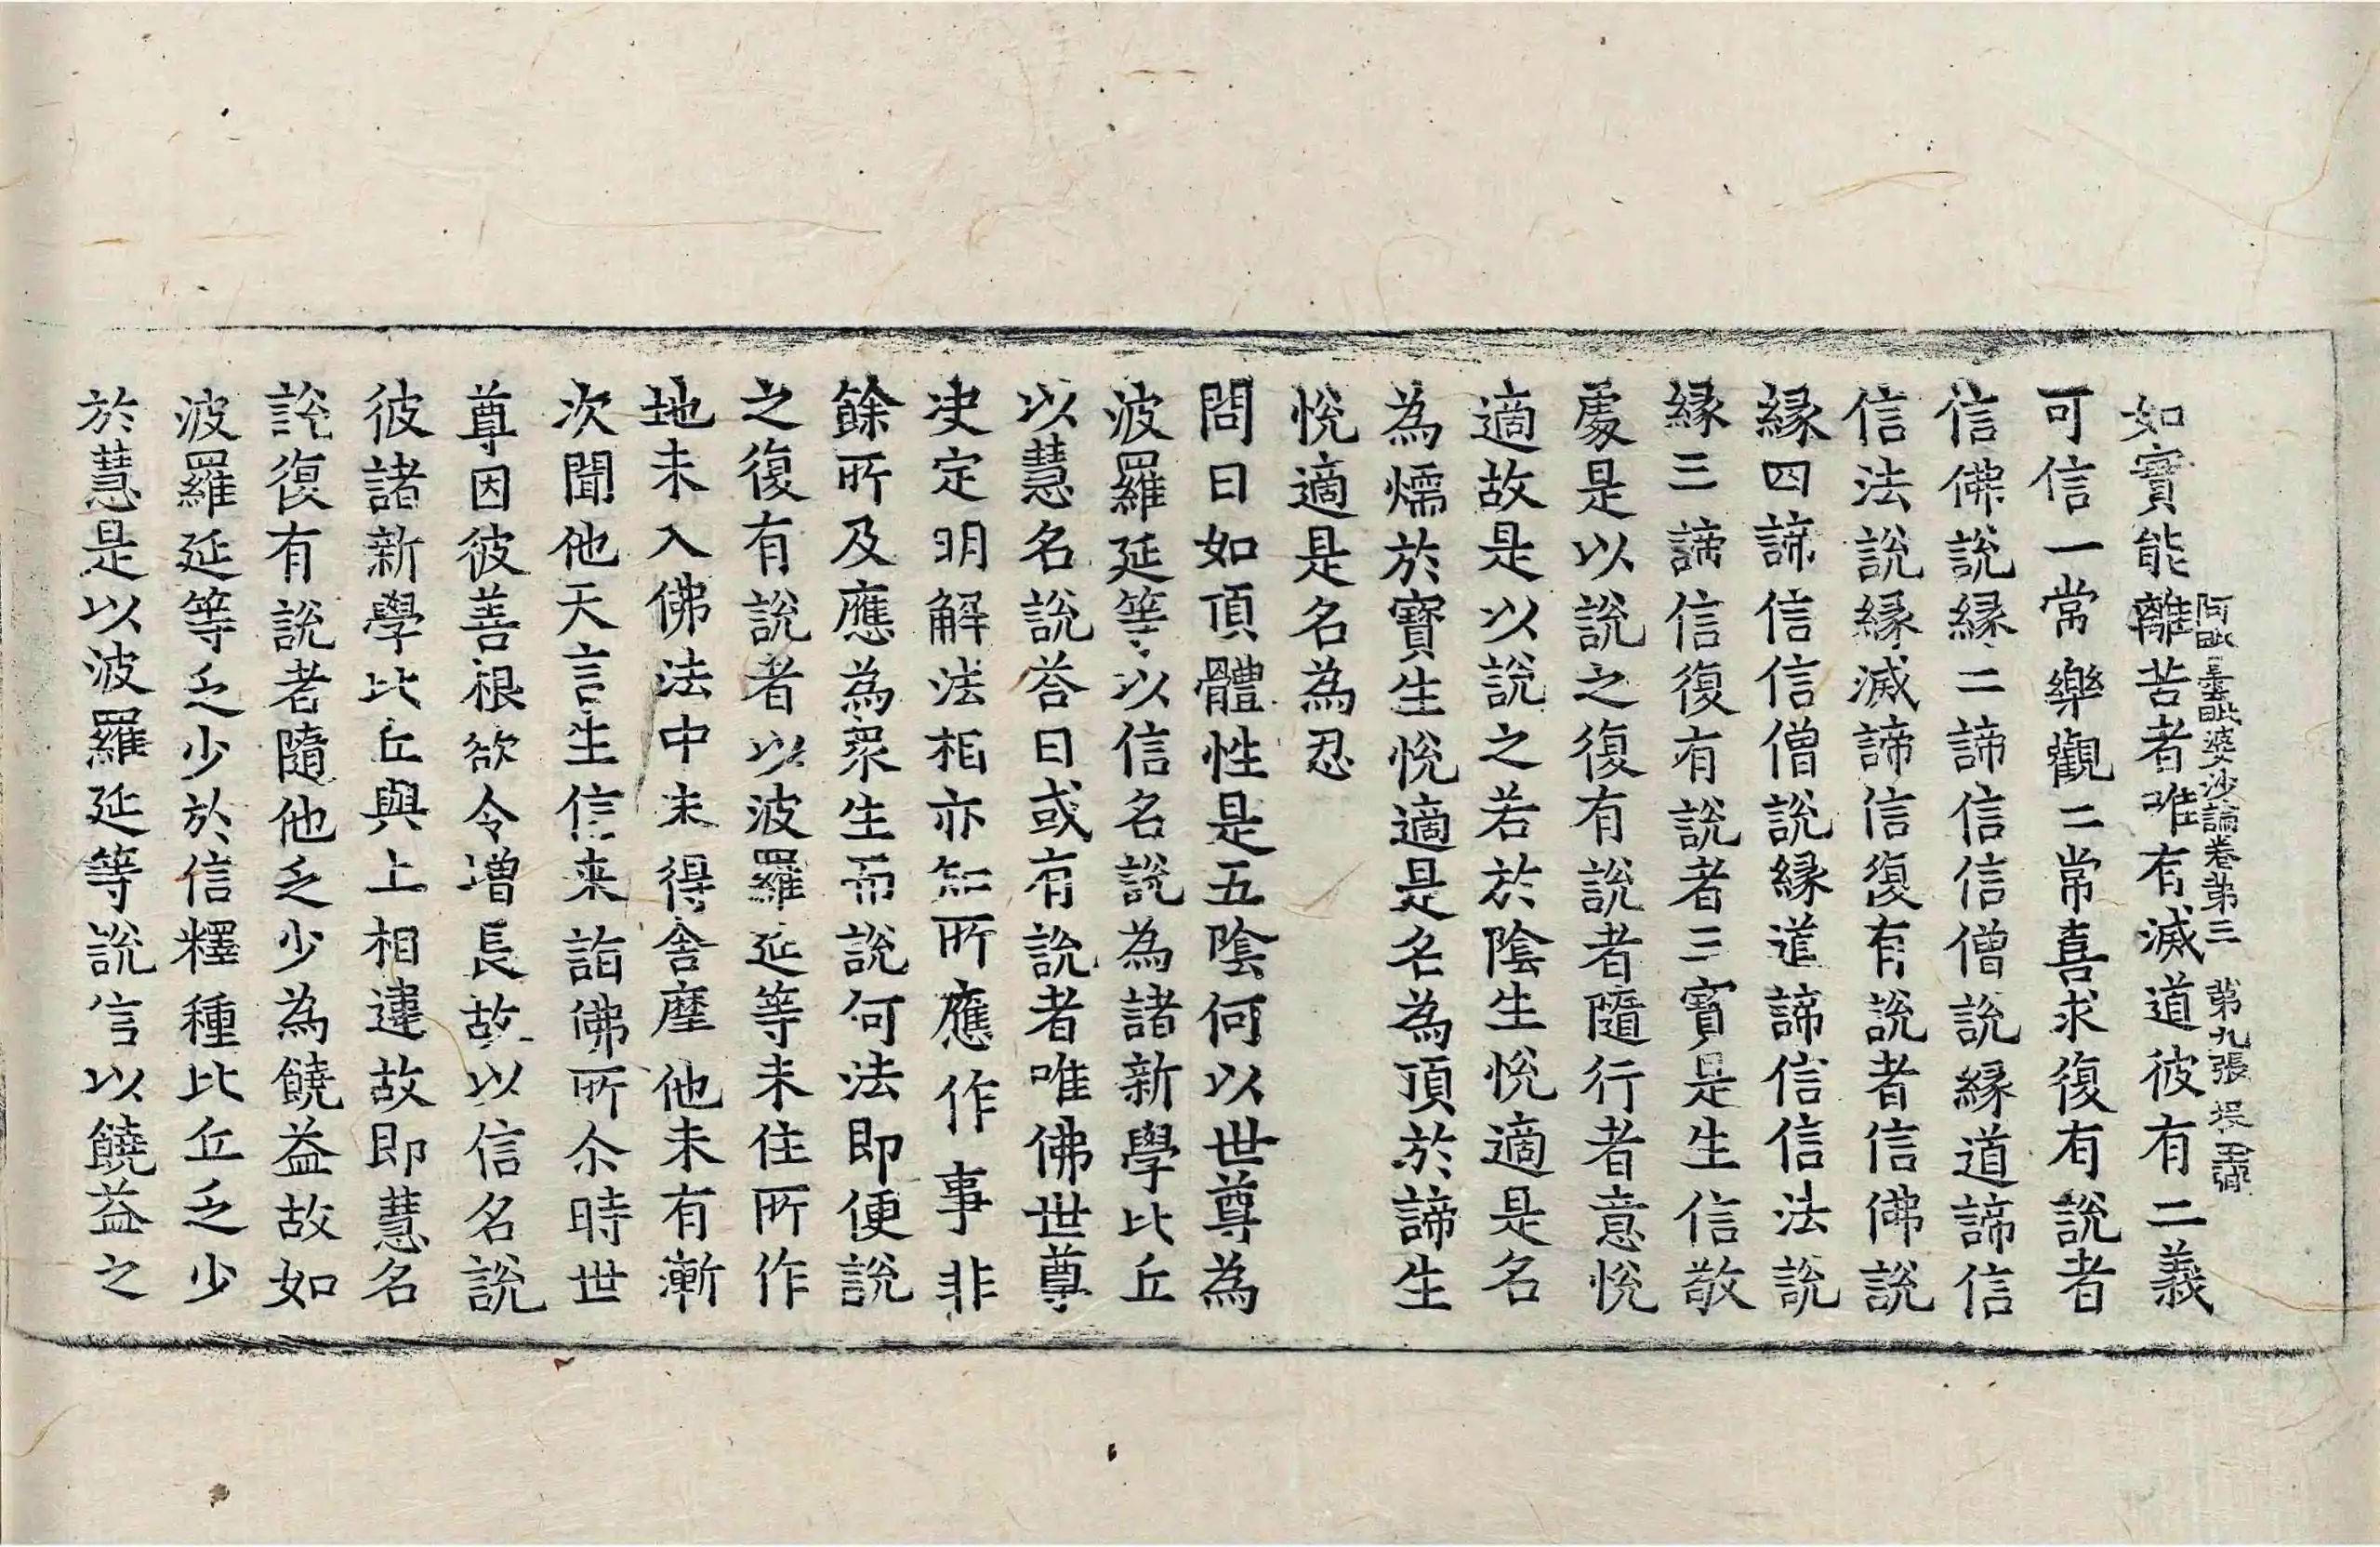 阿毗曇毗婆沙論卷第三　第九張
如實能離苦者唯有滅道彼有二義
可信一常樂觀二常喜求復有說者
信佛說緣二諦信信僧說緣道諦信
信法說緣滅諦信復有說者信佛說
緣四諦信信僧說緣道諦信信法說
緣三諦信復有說者三寶是生信敬
處是以說之復有說者隨行者意悅
適故是以說之若於陰生悅適是名
為燸於寶生悅適是名為頂於諦生
悅適是名為忍
問曰如頂體性是五陰何以世尊為
波羅延等以信名說為諸新學比丘
以慧名說荅曰或有說者唯佛世尊
决定明解法相亦知所應作事非
餘所及應為衆生而說何法即便說
之復有說者以波羅延等未住所作
地未入佛法中未得舍摩他未有漸
次聞他天言生信来詣佛所尒時世
尊因彼善根欲令增長故以信名說
彼諸新學比丘與上相違故即慧名
說復有說者隨他乏少為饒益故如
波羅延等乏少於信釋種比丘乏少
於慧是以波羅延等說信以饒益之